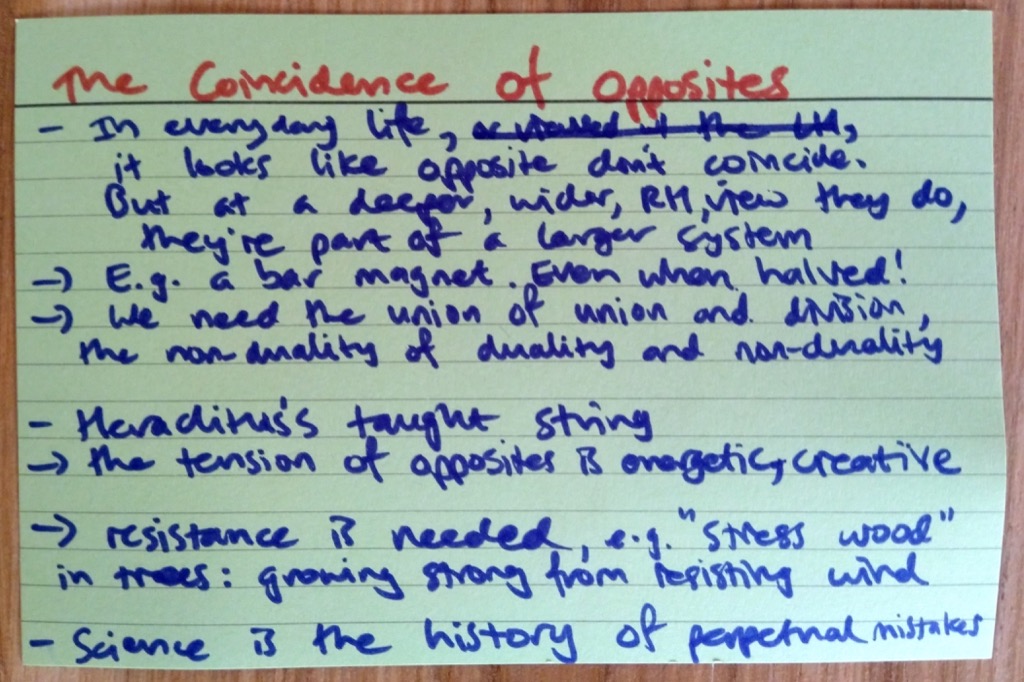 The Coincidence of Opposites
- In everyday life, as viewed it the LH,
it looks like opposite don't coincide.
But at a deeper, wider, RH, view they do,
they're part of a larger system
→ E.g. a bar magnet. Even when halved!
→ We need the union of union and division,
the non-duality of duality and non-duality
- Heraclitus's taught string
→ the tension of opposites is energetic, creative
→ resistance is needed, e.g. "stress wood"
in trees: growing strong from resisting wind
- Science is the history of perpetual mistakes